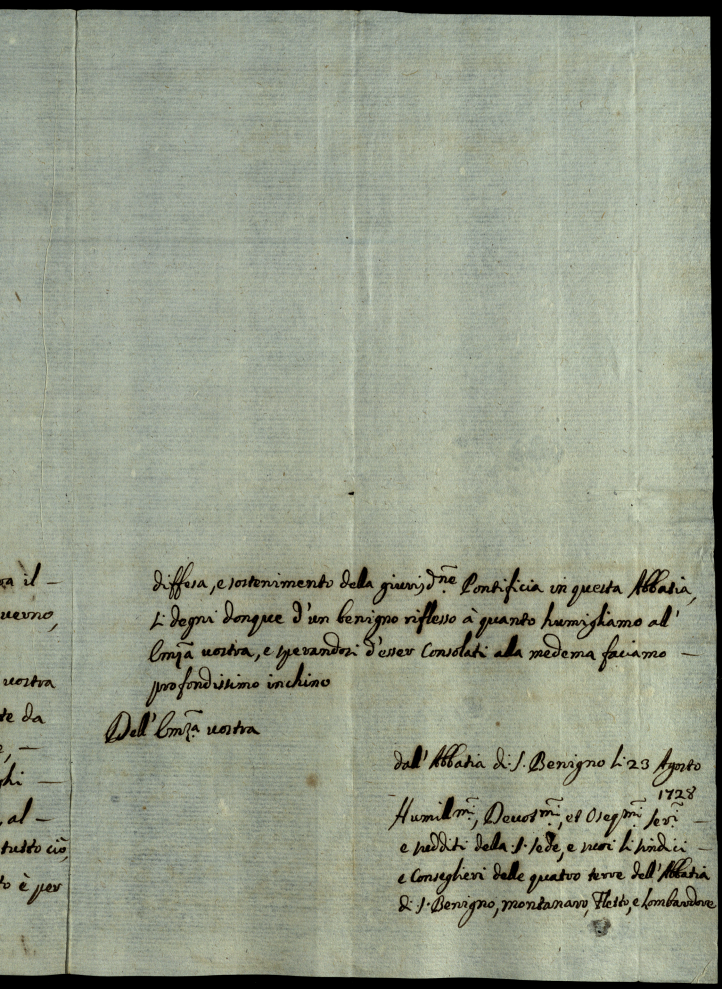 ra il –
uerno,
uostra
te da
e, –
ghi –
, al –
tutto ciò,
to è per
diffesa, e sostenimento della giurisd.ne Pontificia in questa Abbatia,
si degni donque d'un benigno riflesso à quanto humigliamo all'
Emza uostra, e sperandosi d'esser Consolati alla medema faciamo –
profondissimo inchino
Dell'Emza uostra
dall'Abbatia di S. Benigno li 23 Agosto
1728
Humill.mi, Deuot.mi, et Oseq.mi ser.i –
e sudditi della S. sede, e suoi li sindici –
e Conseglieri delle quatro terre dell'Abbatia
di S. Benigno, montanaro, Fletto, e Lombardore